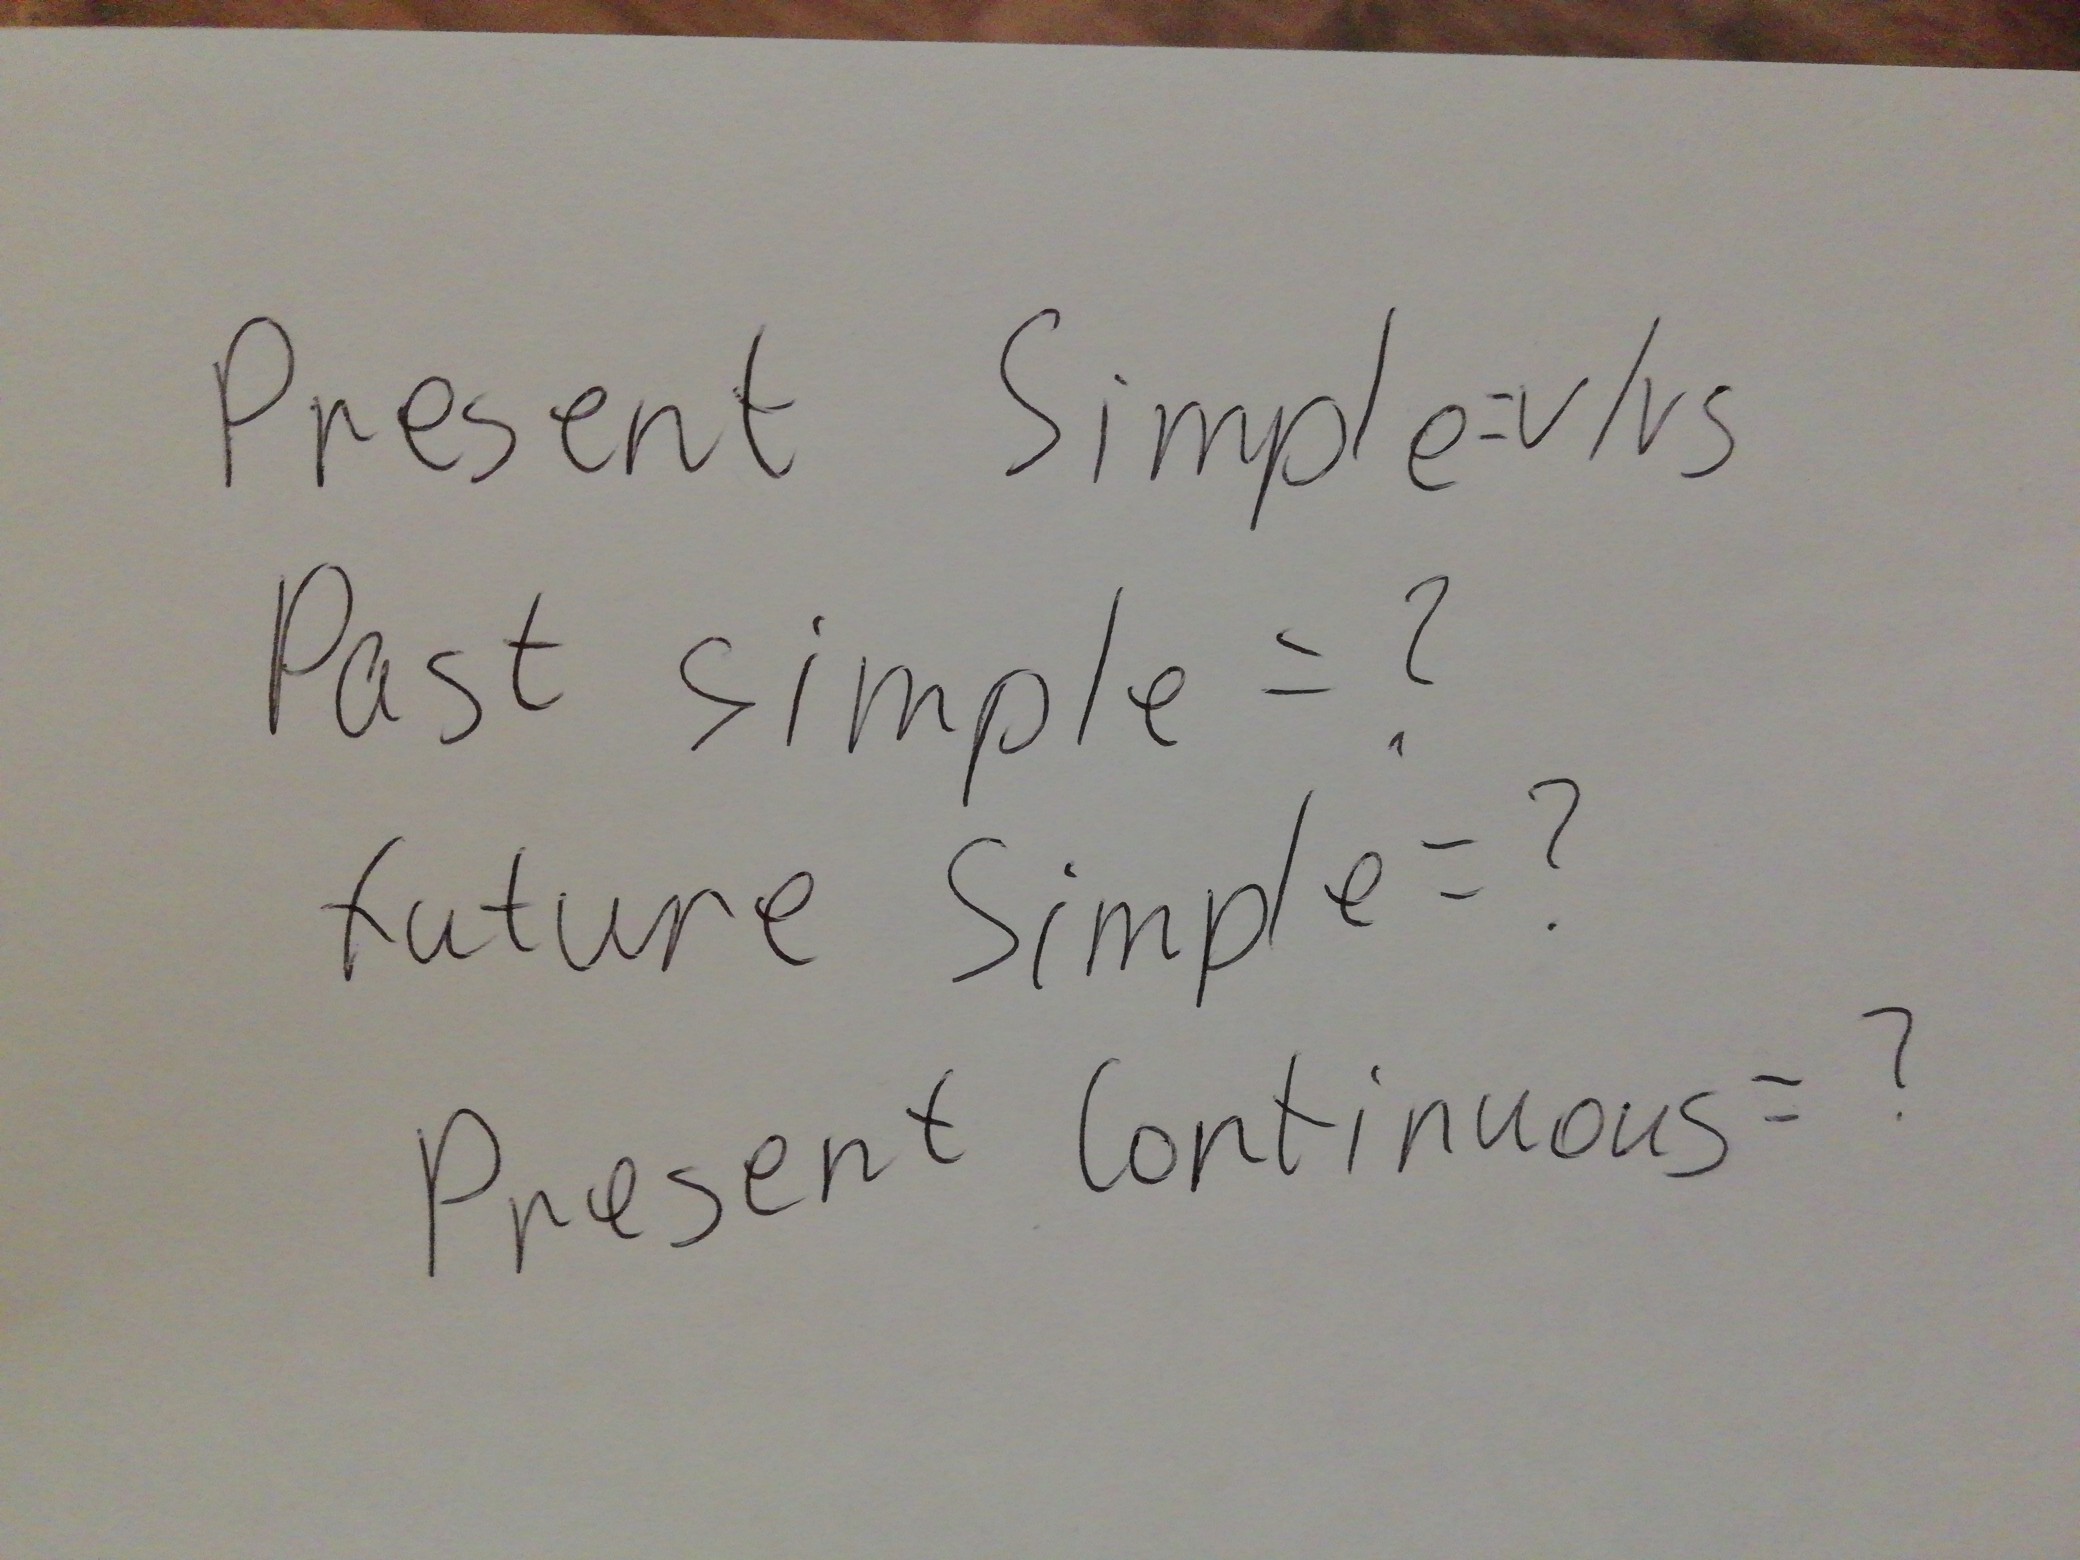 Present Simple=v/vs
Past simple=?
future Simple=?
Present Continuous=?